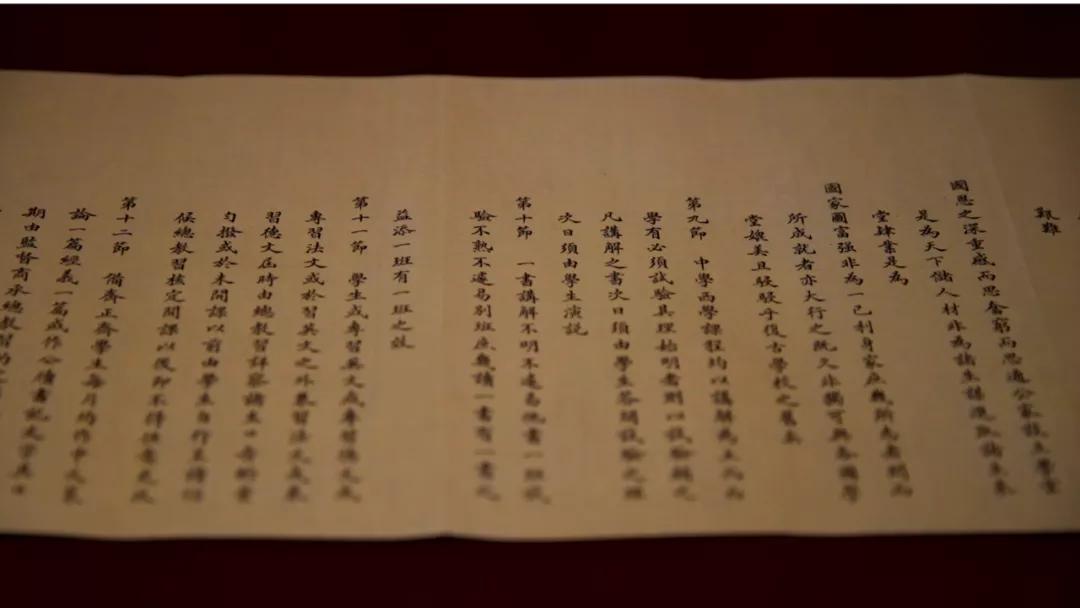 艱難
國恩之深重感而思奮窮而思通公家設立學堂
是為天下儲人材非為諸生謀
堂肄業是為
國家圖富強非為一己利身家庶幾所志者
所成就者亦大行之既久非獨可與各國學
堂媲美且駸駸乎復古學校之舊矣
第九節 中學西學課程均以講解為主而西
學有必須試驗其理始明者則以試驗輔之
凡講解之書次日須由學生答問試驗之理
次日須由學生演說
第十節 一書講解不明不遽易他書一班試
驗不熟不遽易別班庶幾讀一書有一書之
益添一班有一班之效
第十一節 學生或專習英文或專習德文或
專習法文或於習英文之外兼習法文或兼
習德文屆時由總教習詳察諸生口音
勻撥或於未開課以前由學生自行
候總教習核定開課以後即不得
第十二節 備齋正齋學生每月均作中文
論一篇經義一篇或作公牘書記文字
期由監督商承總教習